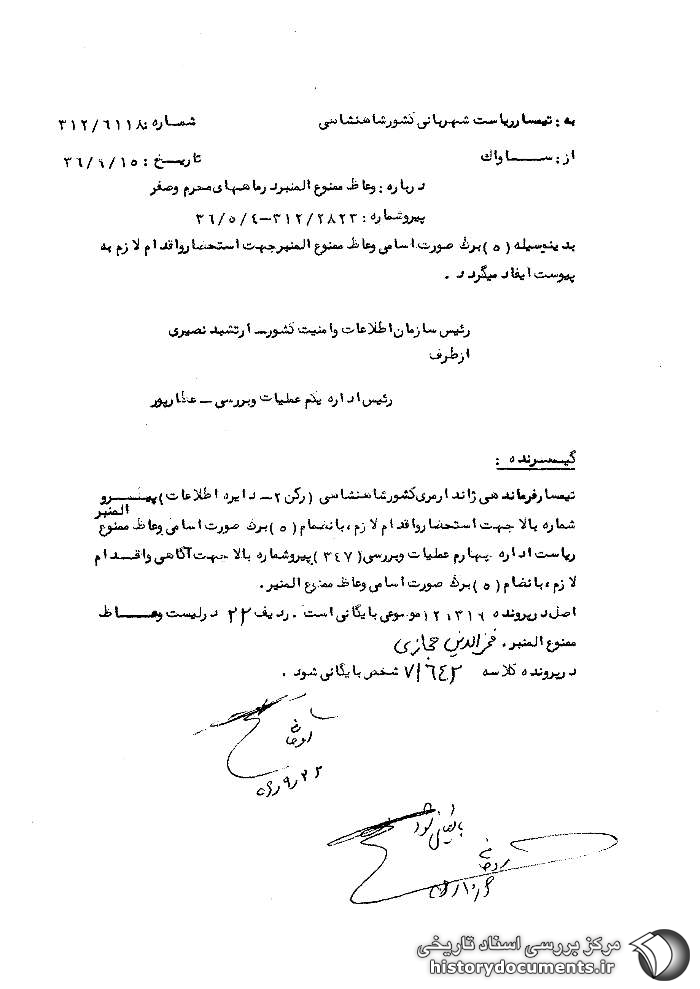 به : تیمسار ریاست شهربانی کشور شاهنشاهی
شماره : ۳۱۲/۶۱۱۸
از : ســـاواک
تاریــخ : ۳۶/۹/۱۵
درباره : وعاظ ممنوع المنبر در ماههای محرم وصفر
پیروشماره : ۳۱۲/۲۸۲۳–۳۶/۵/۴
بدینوسیله (۵) برگ صورت اسامی وعاظ ممنوع المنبر جهت استحضار واقدام لازم به
پیوست ایفاد میگردد .
رئیس سازمان اطلاعات وامنیت کشور ــ ارتشبد نصیری
ازطرف
رئیس اداره یکم عملیات وبررسی ــ عطارپور
گیــرنده :
تیمسار فرماندهی ژاندارمری کشور شاهنشاهی (رکن ۲ــ دایره اطلاعات) پیــرو
شماره بالا جهت استحضار واقدام لازم ، بانضمام (۵) برگ صورت اسامی وعاظ ممنوع المنبر
ریاست اداره چهارم عملیات وبررسی (۳۴۷) پیروشماره بالا جهت آگاهی واقــدام
لازم ، بانضمام (۵) برگ صورت اسامی وعاظ ممنوع المنبر .
اصل در پرونده ۱۲۱۳۱۶ موضوعی بایگانی است . ردیف ۲۲ در لیست وعــاظ
ممنوع المنبر . فخرالدین حجازی
در پرونده کلاسه ۷۱۶۴۲ شخص بایگانی شود .
بایگانی شود
مرکز بررسی اسناد تاریخی
historydocuments.ir